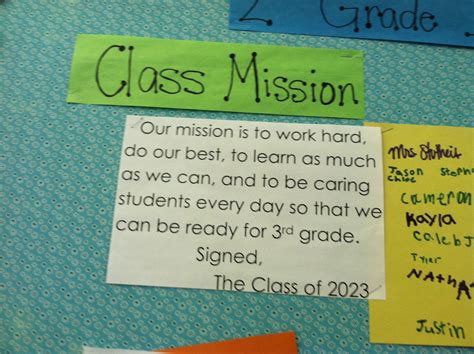 2 Grade
Class Mission
Our mission is to work hard,
do our best, to learn as much
as we can, and to be caring
students every day so that we
can be ready for 3rd grade.
Signed,
The Class of 2023
Mrs.
Jason Steph
Chloe
Cameron
Kayla
Caleb J
Tyler
Natha
Justin